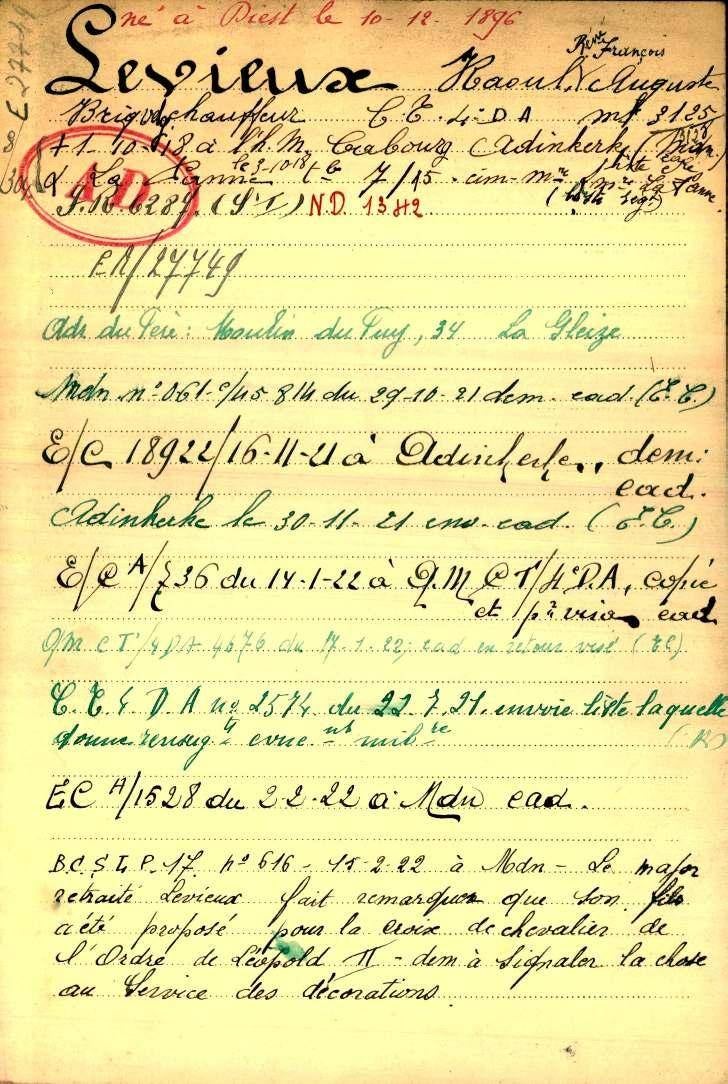 né à Diest le 10-12-1896
E 27749
Levieux Raoul René François Auguste
Brig chauffeur C.T. 4 DA mle 3125
+ 1-10-18 à l'h.M. Cabourg (Adinkerke)
à La Panne le 3-10-18 tbe 7/15 cim-mre liste
AD
S.R. 6287. (S.I) N.D. 1342
ER/27749
Adr du Père: Moulin du Ruy, 34 La Gleize
Mdn n° 061-c/45814 du 29-10-21 dem. ead (E.C.)
E/C 18922/16-11-21 à Adinkerke, dem:
ead.
Adinkerke le 30-11-21 env. ead. (E.C.)
E/C A/736 du 14-1-22 à Q.M.C.T/4eD.A, copie
et pr visa ead
QM CT/4DA 4676 du 17.1.22; ead en retour visé (EC)
C.T. 4 D A no 2574 du 22.7.21. envoie liste laquelle
donne renseig ts
EC A/1528 du 2-2-22 à Mdn ead.
B.C.S.I.P. 17. n° 616 - 15-2-22 à Mdn - Le major
retraité Levieux fait remarquer que son fils
a été proposé pour la croix de chevalier de
l'Ordre de Léopold II - dem à signaler la chose
au Service des décorations